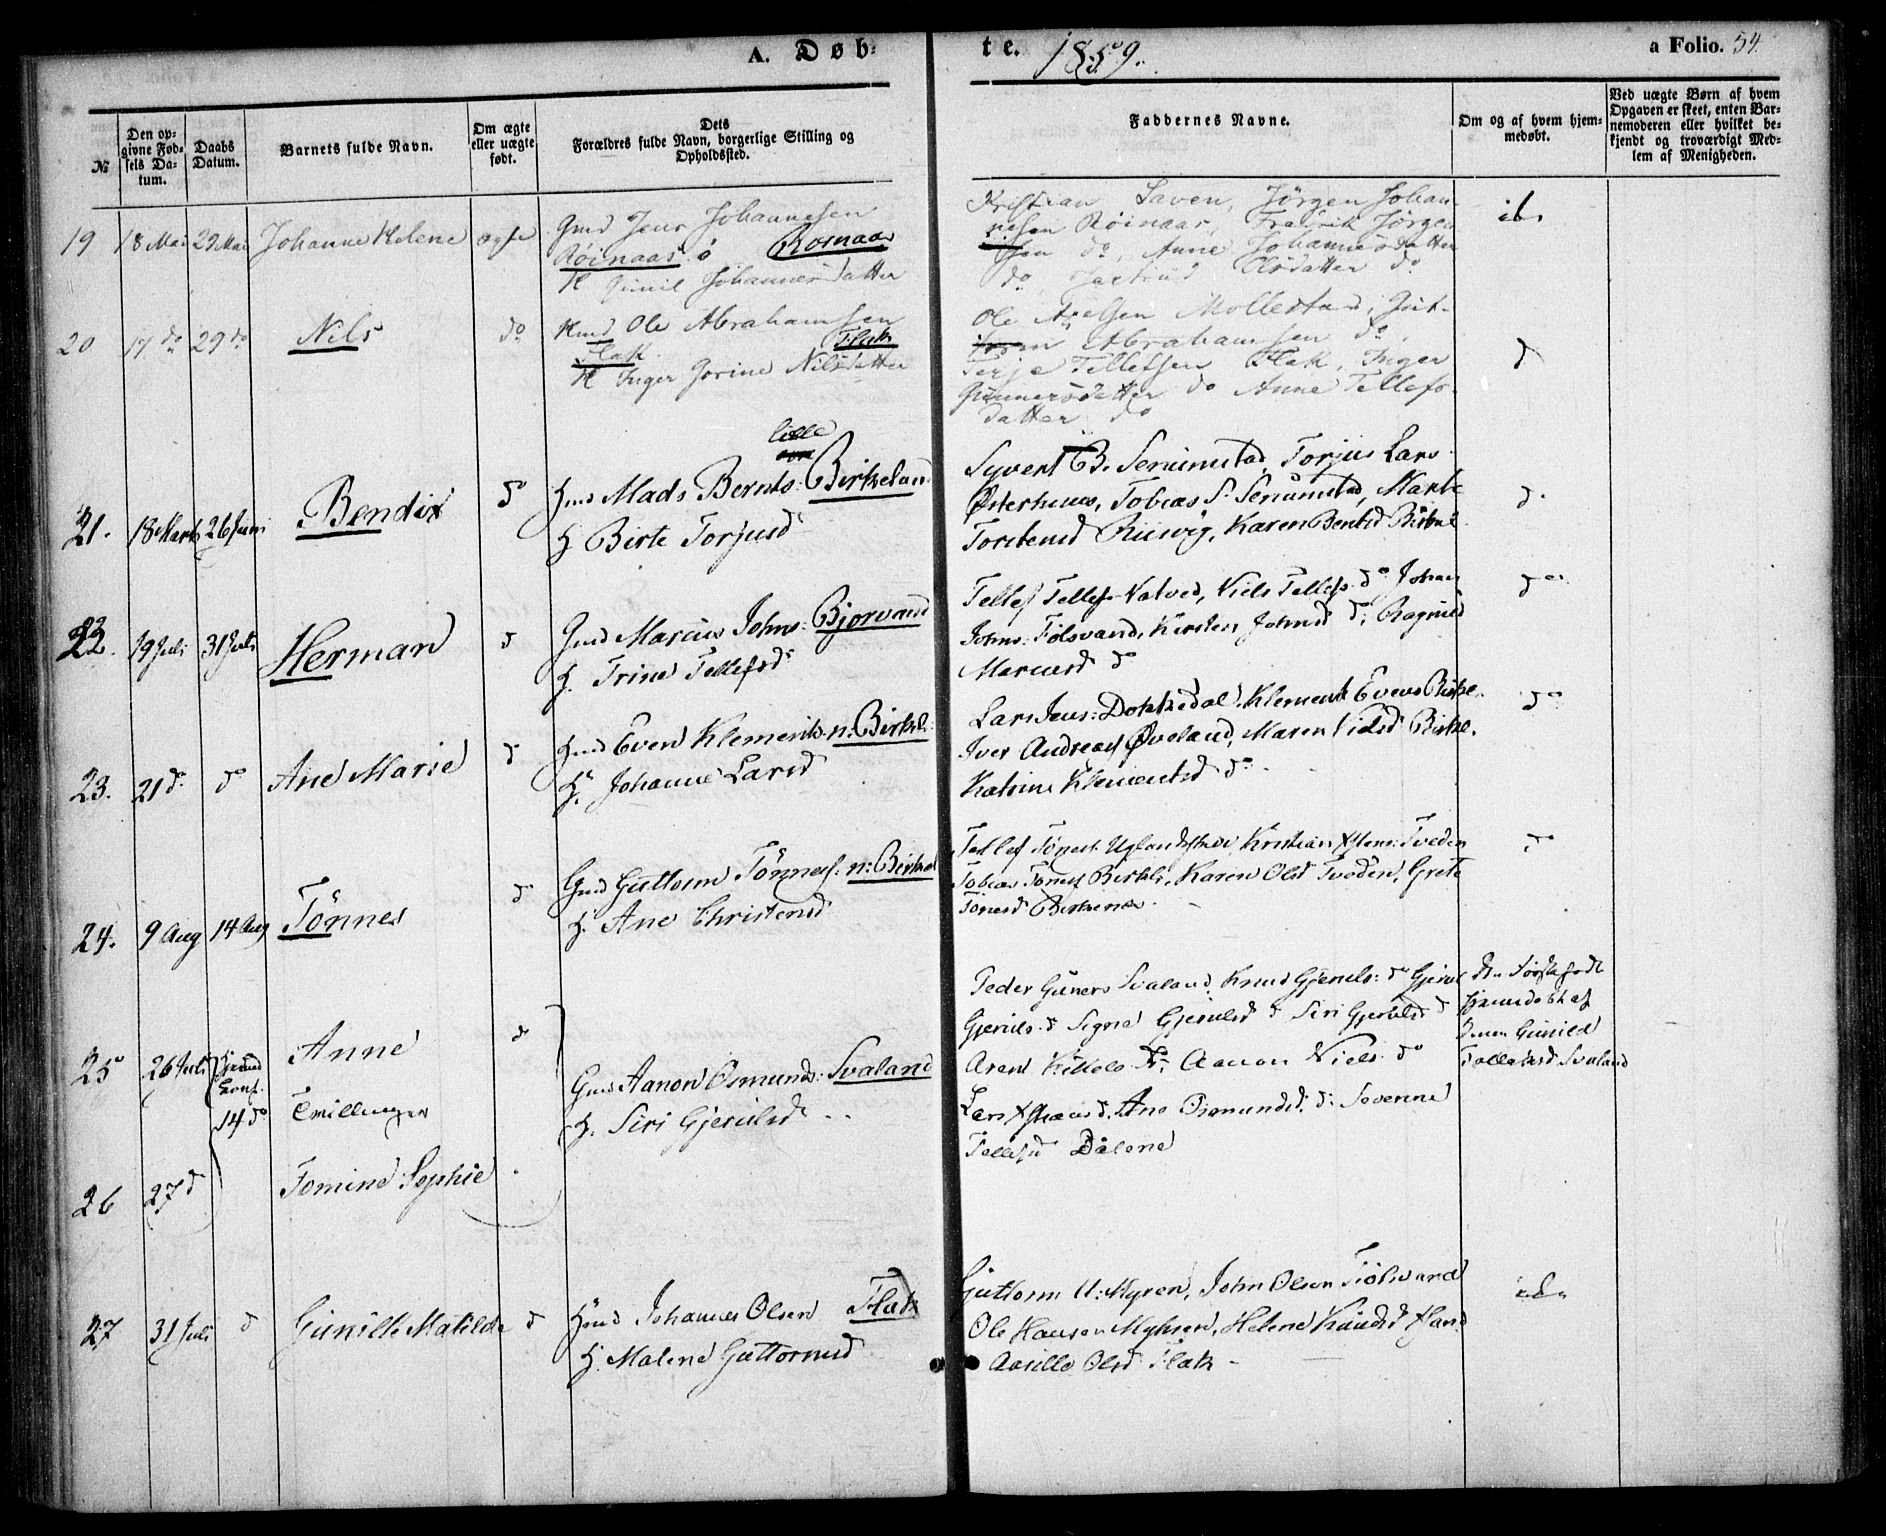 A. Døb-
te. 1859.
a Folio. 54
№
Den op-
givne Fød-
sels Da-
tum.
Daabs
Datum.
Barnets fulde Navn.
Om ægte
eller uægte
født.
Dets
Forældres fulde Navn, borgerlige Stilling og
Opholdssted.
Faddernes Navne.
Om og af hvem hjem-
medøbt.
Ved uægte Børn af hvem
Opgaven er skeet, enten Bar-
nemoderen eller hvilket be-
kjendt og troværdigt Med-
lem af Menigheden.
19 18 Mai 29 Mai Johanne Helene ægte
Gmd Jens Johannesen
Røinaas Roinaas
H Gunil Johannesdatter
Kristian Saven, Jørgen Johan-
nesen Røinaas, Fredrik Jørgen-
sen do, Anne Johannesdatter
do, Olsdatter do
20 17 do 29 do Nils do
Hmd Ole Abrahamsen
Flak Flak
H Inger Jorine Nilsdatter
Ole Axelsen Mollestad, Gut-
torm Abrahamsen do,
Terje Tellefsen Flak, Inger
Gunnersdatter do Anne Tellefs-
datter do
21. 18 Marts 26 Juni Bendix d
lille
Gmd Mads Bernts: Birkelan
H Birte Torjusd
Syvert B. Senumstad, Torjus Lars
Østerhuus, Tobias S. Senumstad, Marte
Torstensd Riisvig, Karen Bentsd Birkel
d.
22. 19 Juli 31 Juli Herman d
Gmd Marcus Johns: Bjorvand
H. Trine Tellefsd
Tellef Tellefs Natved, Niels Tellefs do Johan
Johns: Fölsvand, Kirsten Johnsd d; Ragnild
Marcusd do
do
23. 21 d. do Ane Marie d
Gmd Even Klements n: Birkel
H. Johanne Larsd
Lars Jens: Dokkedal, Klement Evens Birkel.
Iver Andreas Øveland, Maren Nielsd Birkel.
Katrine Klementsd do
do
24. 9 Aug 14 Aug Tönnes d
Gmd Guttorm Tönnes: n: Birkel
H. Ane Christensd
Tellef Tönnes Uglandstved, Kristian Tveden
Tobias Tönnes Birkel, Karen Olsd Tveden, Grete
Tönnesd Birkenes
do
25 26 Juli Anne d
14 do Tvillinger
Gmd Aanon Osmunds: Svaland
H. Siri Gjeruldsd
26 27 d Tomine Sophie
Peder Guners Svaland, Knud Gjerulds: do Gjeruld
Gjerulds d Signe Gjeruldsd d Siri Gjeruldsd d
Arent Kittels Aanon Niels do
Lars d. Ane Osmundsd. d: Severine
Tellefsd Dalene
den førstefødte
hjemdøbt af
Gunild
Svaland
27 31 Juli d Gunille Matilde d
Hmd Johannes Olsen Flak
H. Malene Guttormsd
Guttorm U: Myren, John Olsen Fiölsvand
Ole Hansen Myhren, Helene Knudsd
Aasille Olsd Flak